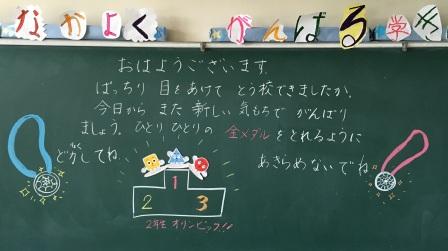 なかよく がんばる学
おはようございます。
ぱっちり 目をあけて とう校できましたか。
今日から また 新しい 気もちで がんばり
ましょう。ひとり ひとりの 金メダル をとれるように
どりょくしてね。 あきらめないでね
1
2 3
2年生 オリンピック!!